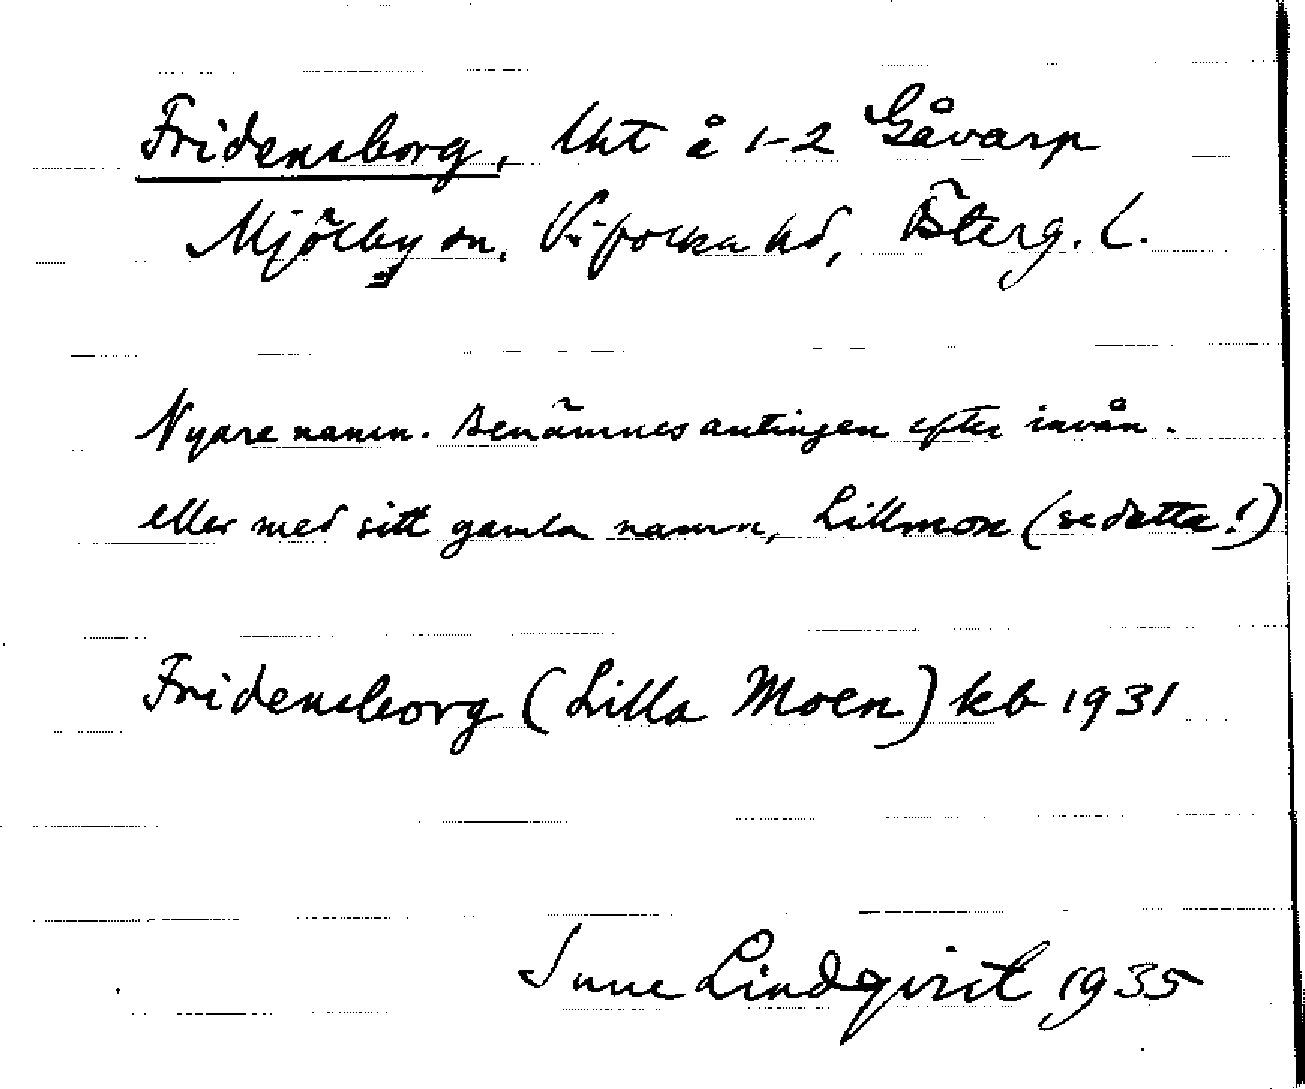 Fridensborg, lht å 1-2 Gåvarp
Mjölby sn, Vifolka hd, Österg. l.
Nyare namn. Benämnes antingen efter invån.
eller med sitt gamla namn, Lillmon (se detta!)
Fridensborg (Lilla Moen) kb 1931
Sune Lindqvist 1935